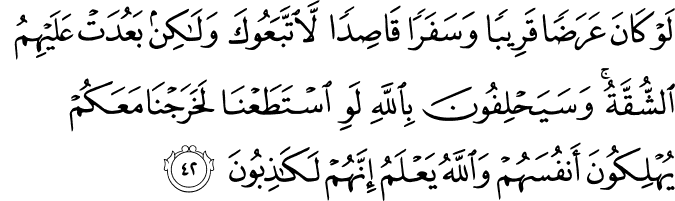 لَوْ كَانَ عَرَضًا قَرِيبًا وَسَفَرًا قَاصِدًا لَّاتَّبَعُوكَ وَلَٰكِنۢ بَعُدَتْ عَلَيْهِمُ
ٱلشُّقَّةُ ۚ وَسَيَحْلِفُونَ بِٱللَّهِ لَوِ ٱسْتَطَعْنَا لَخَرَجْنَا مَعَكُمْ
يُهْلِكُونَ أَنفُسَهُمْ وَٱللَّهُ يَعْلَمُ إِنَّهُمْ لَكَٰذِبُونَ ٤٢